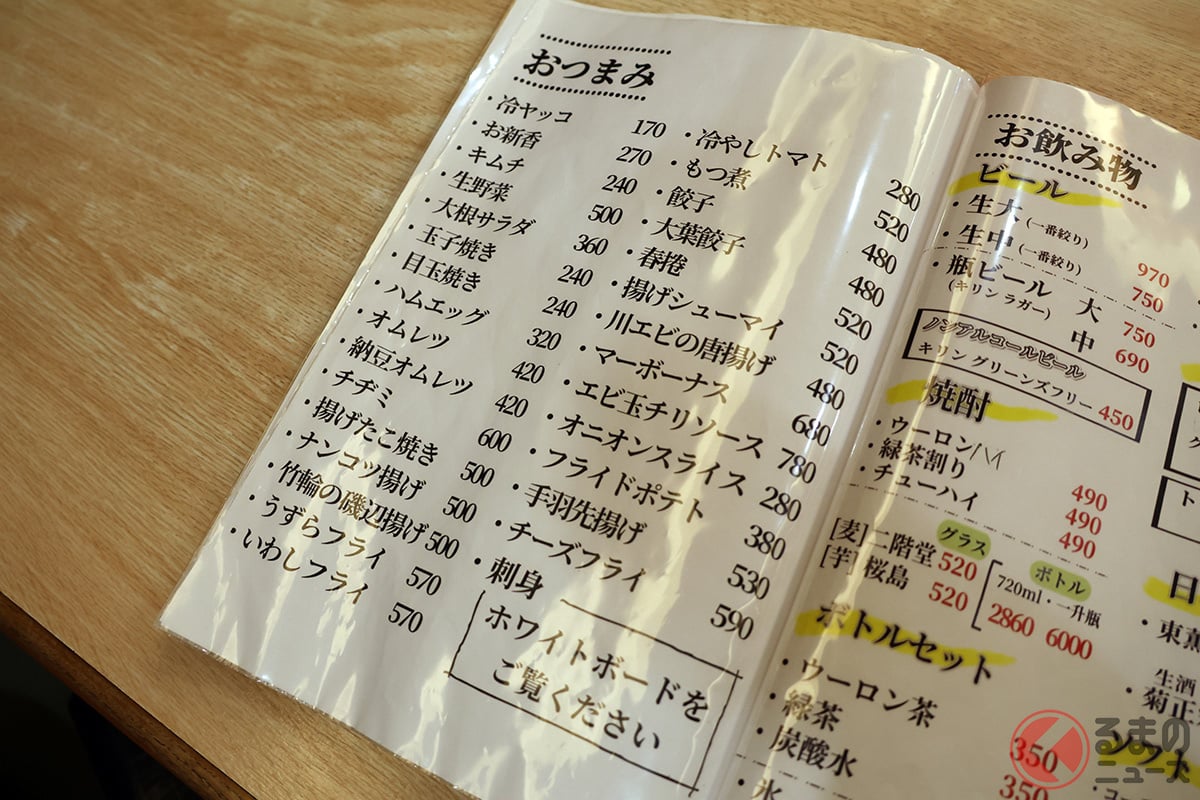 おつまみ
・冷ヤッコ 170
・お新香 270
・キムチ 240
・生野菜 500
・大根サラダ 360
・玉子焼き 240
・目玉焼き 240
・ハムエッグ 320
・オムレツ 420
・納豆オムレツ 420
・チヂミ 600
・揚げたこ焼き 500
・ナンコツ揚げ 500
・竹輪の磯辺揚げ 500
・うずらフライ 570
・いわしフライ 570
・冷やしトマト 280
・もつ煮 520
・餃子 480
・大葉餃子 480
・春捲 520
・揚げシューマイ 520
・川エビの唐揚げ 480
・マーボーナス 680
・エビ玉チリソース 780
・オニオンスライス 280
・フライドポテト 380
・手羽先揚げ 530
・チーズフライ 590
・刺身
ホワイトボードを
ご覧ください
お飲み物
ビール
・生大(一番絞り) 970
・生中(一番絞り) 750
・瓶ビール 大 750
(キリンラガー) 中 690
ノンアルコールビール
キリングリーンズフリー 450
焼酎
・ウーロンハイ 490
・緑茶割り 490
・チューハイ 490
グラス ボトル
[麦]二階堂 520
[芋]桜島 520
720ml・一升瓶
2860 6000
ボトルセット
・ウーロン茶 350
・緑茶 350
・炭酸水
・氷
日
・東薫
生酒
・菊正
ソフト
くるまの
ニュース